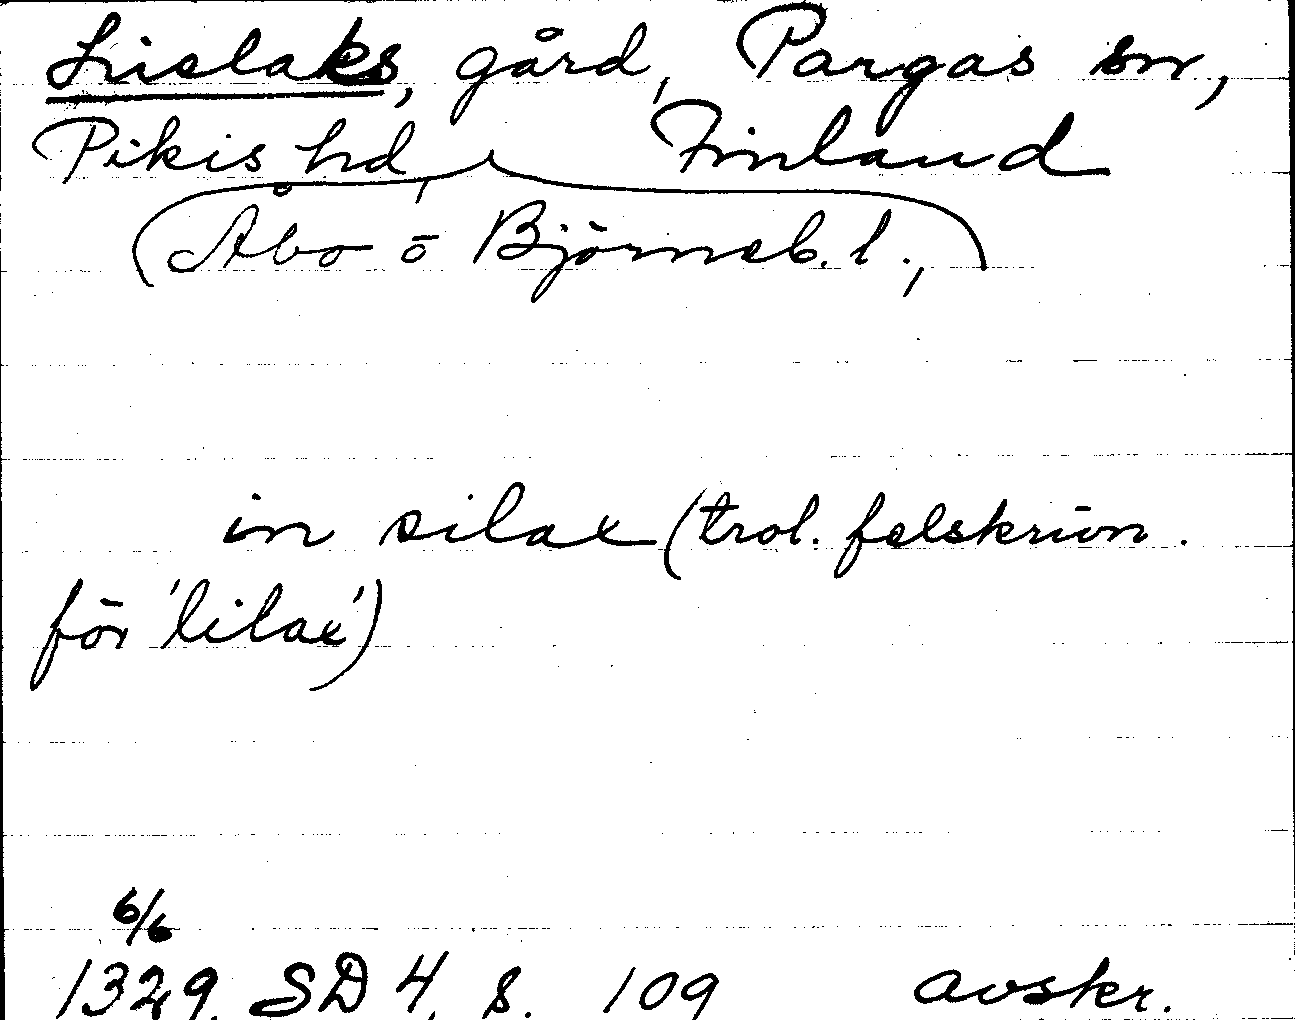 Lielaks, gård, Pargas sn,
Pikis hd, Finland
(Åbo o Björneb. l.,)
in silax (trol. felskrivn.
för 'lilax')
6/6
1329. SD 4, s. 109 avskr.